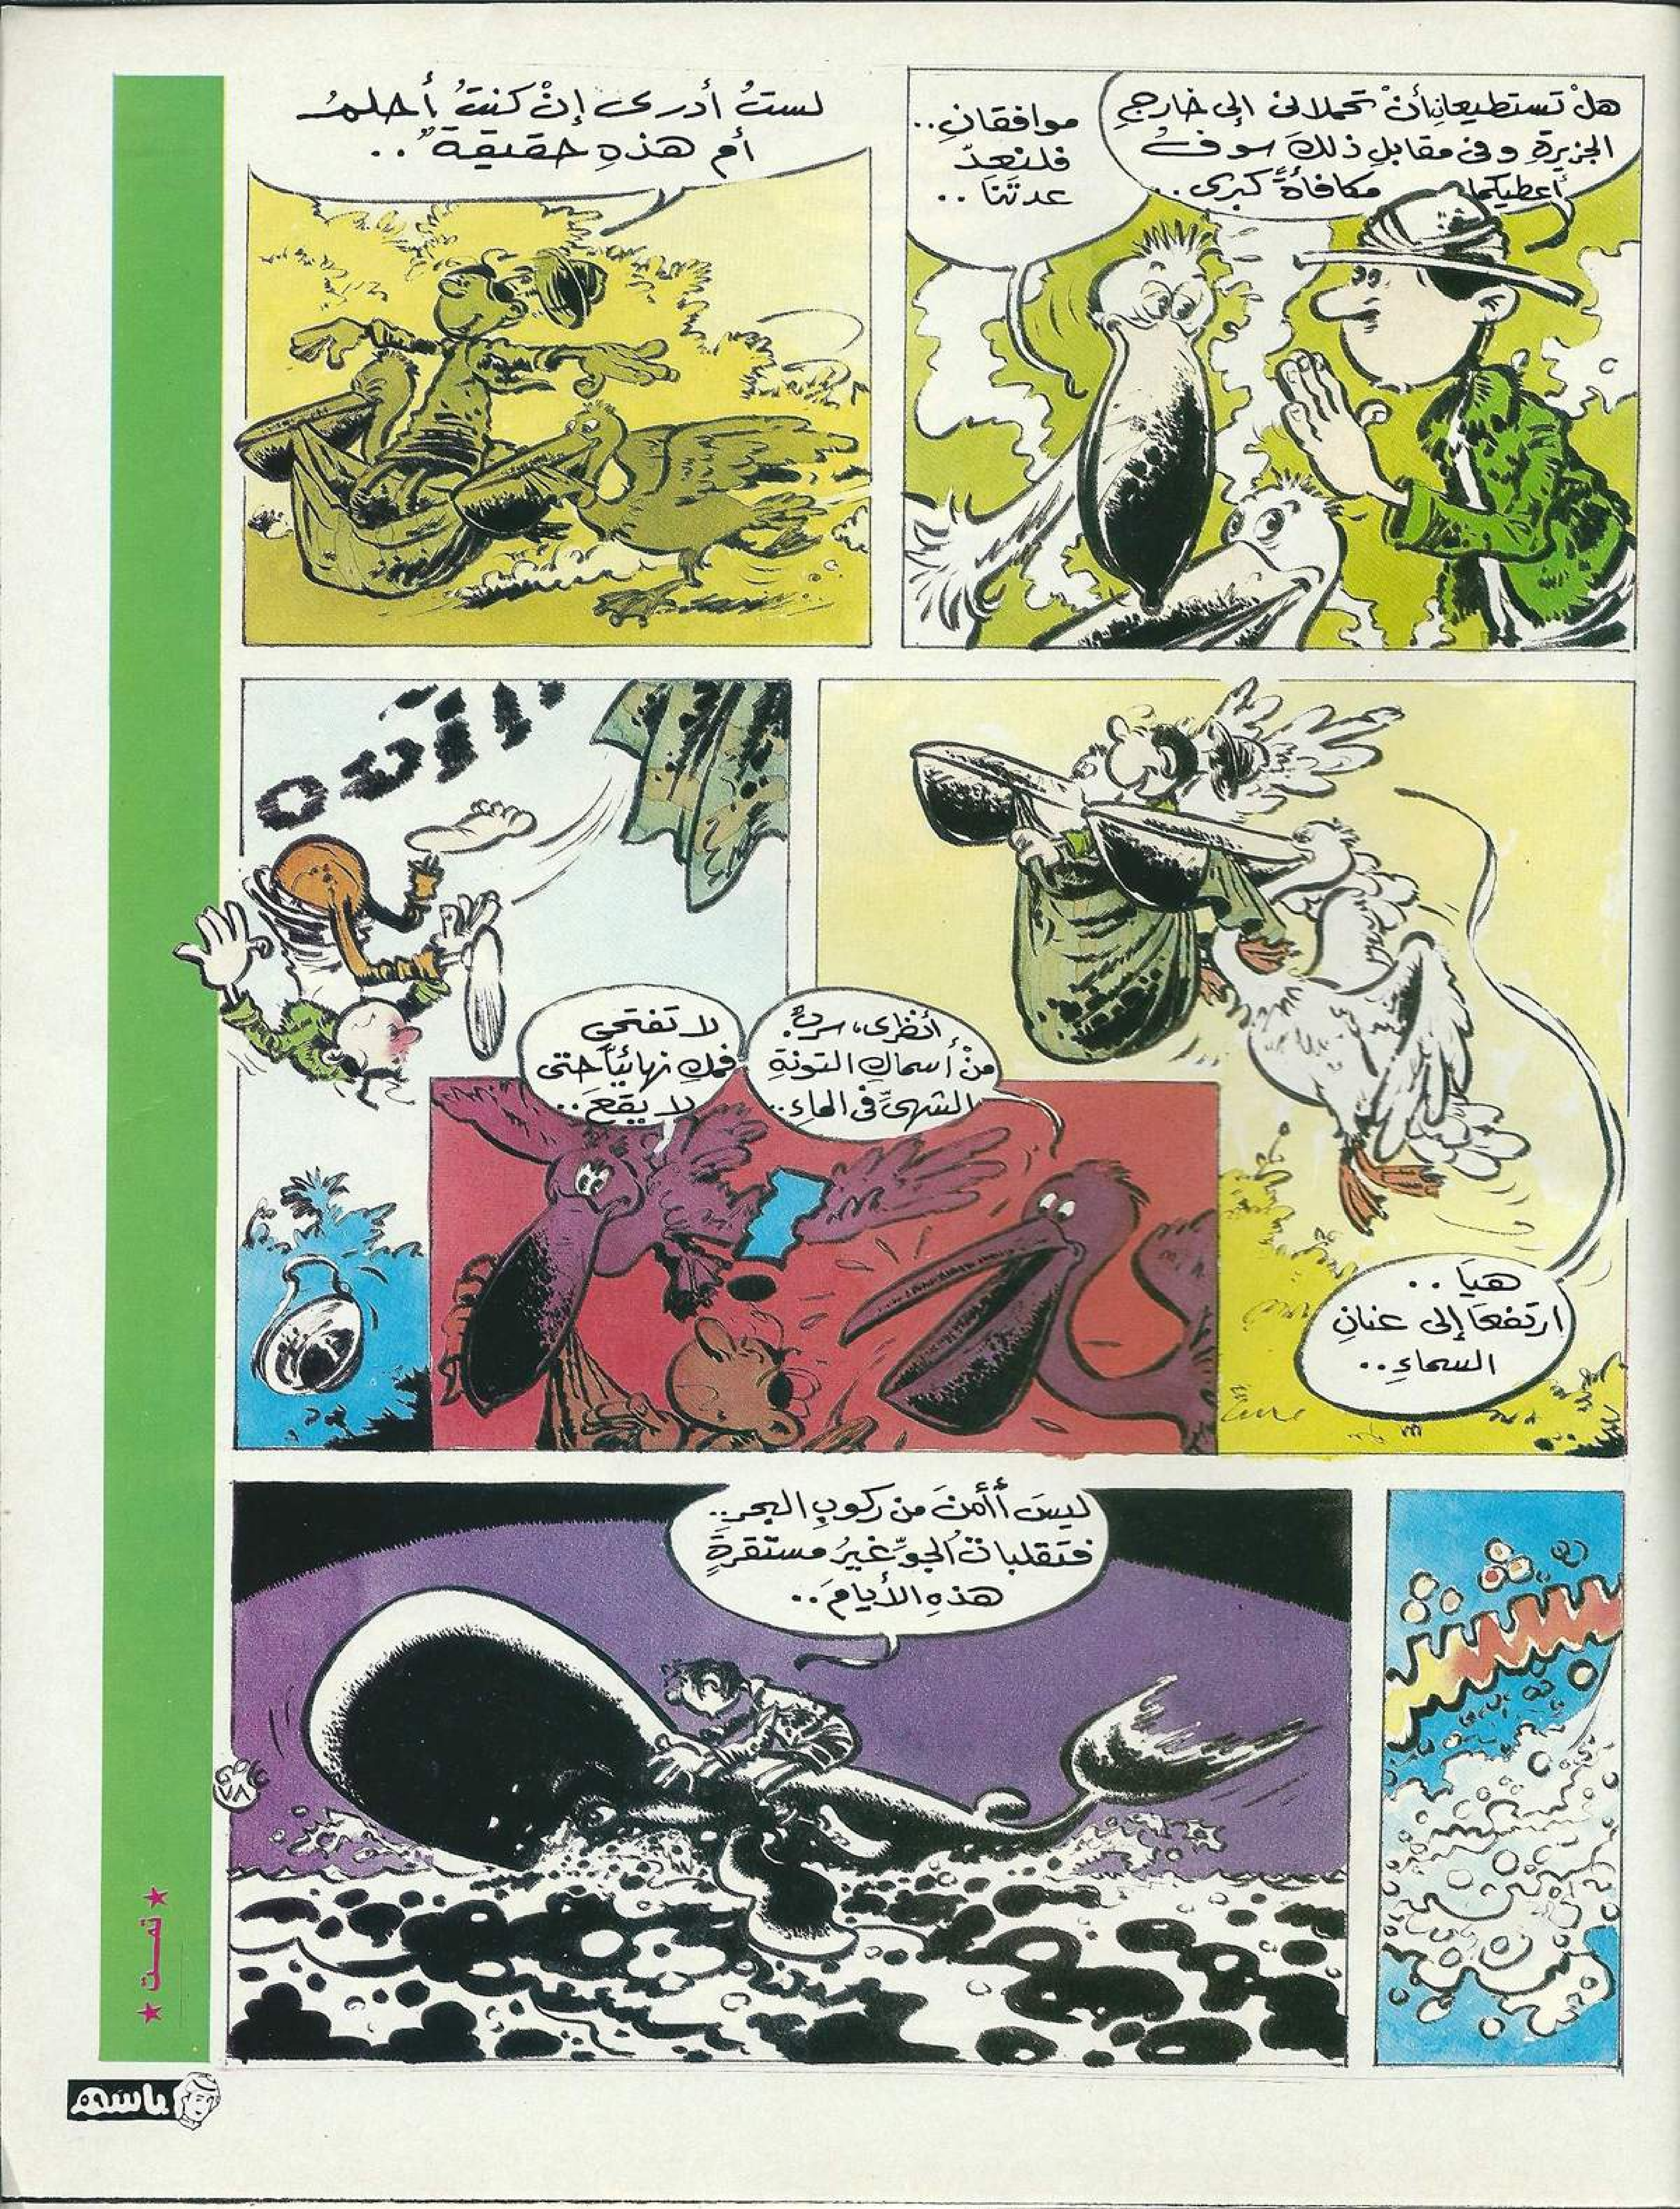 هلْ تستطيعانِ أنْ تحملاني إلى خارجِ
الجزيرةِ وفي مقابلِ ذلكَ سوفُ
أعطيكما مكافأةً كبرى..
موافقانِ..
فلنعدّ
عدتَنَا..
لستُ أدرى إنْ كنتُ أحلمُ
أم هذهِ حقيقةٌ..
هيَا..
ارتفعَا إلى عنانِ
السماءِ..
أنظرى، سربٌ
منْ أسماكِ التونةِ
الشهىِّ فى الماءِ..
لا تفتحى
فمكِ نهائيّاً حتى
لا يَقعَ..
ليسَ أأمنَ من ركوبِ البحرِ..
فتقلباتُ الجوِّ غيرُ مستقرةٍ
هذهِ الأيامَ..
★ تمــت ★
باسم